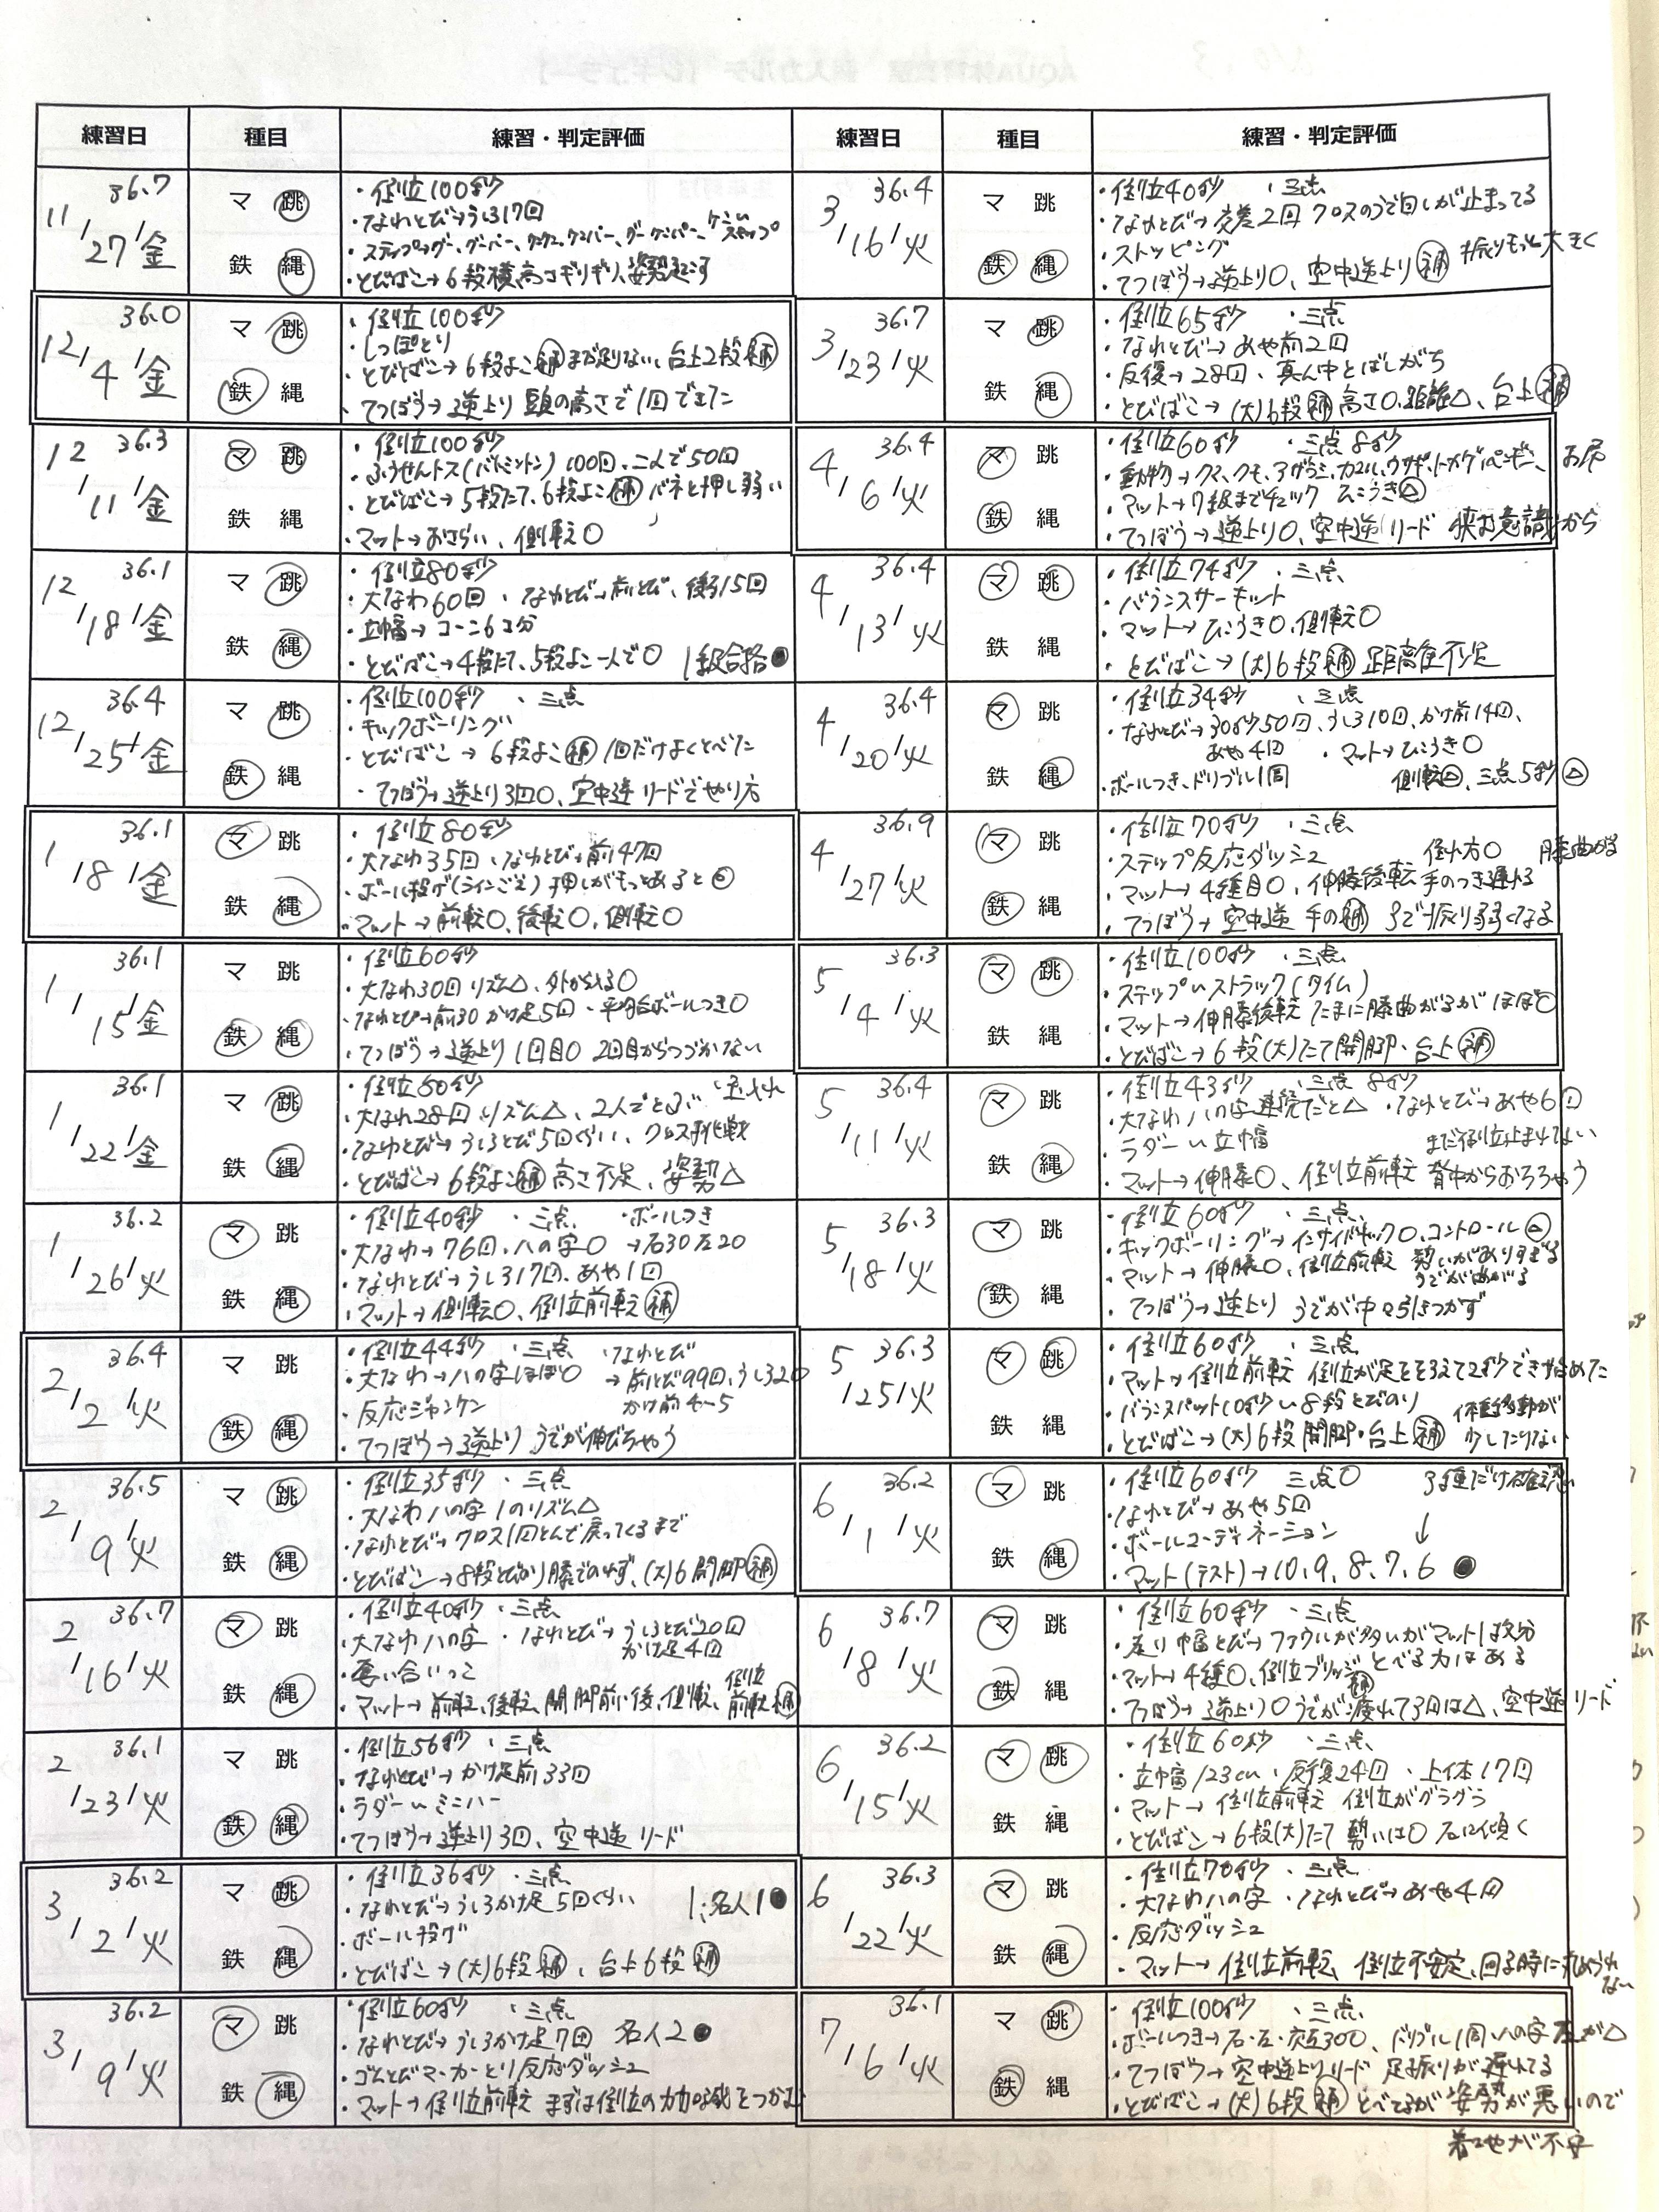 練習日 種目 練習・判定評価
36.7
11/27/金
マ 跳
鉄 縄
・倒立100秒
・なわとび→うしろ17回
・とびばこ→6段横、高さギリギリ、姿勢起こす
36.0
12/4/金
マ 跳
鉄 縄
・倒立100秒
・しっぽとり
・とびばこ→6段よこ補まだ足りない、台上2段補
・てつぼう→逆上り 頭の高さで1回できた
36.3
12/11/金
マ 跳
鉄 縄
・倒立100秒
・ふうせんトス(バトミントン)100回、二人で50回
・とびばこ→5段たて、6段よこ補 バネと押し弱い
・マット→おさらい、側転○
36.1
12/18/金
マ 跳
鉄 縄
・倒立80秒
・大なわ60回 ・なわとび→前とび、後ろ15回
・立幅→コーン6コ分
・とびばこ→4段たて、5段よこ一人で○ 1級合格●
36.4
12/25/金
マ 跳
鉄 縄
・倒立100秒 ・三点
・キックボーリング
・とびばこ→6段よこ補 1回だけよくとべた
・てつぼう→逆上り3回○、空中逆リードでやり方
36.1
1/8/金
マ 跳
鉄 縄
・倒立80秒
・大なわ35回 ・なわとび→前47回
・ボール投げ(ラインごえ)押しがもっとあると
・マット→前転○、後転○、側転○
36.1
1/15/金
マ 跳
鉄 縄
・倒立60秒
・大なわ30回 リズム△、外から入る○
・なわとび→前30 かけ足5回 ・平均台ボールつき○
・てつぼう→逆上り1回目○ 2回目からつづかない
36.1
1/22/金
マ 跳
鉄 縄
・倒立60秒
・大なわ28回 リズム△、2人でとぶ
・なわとび→うしろとび5回ぐらい、クロス挑戦
・とびばこ→6段よこ補高さ不足、姿勢△
36.2
1/26/火
マ 跳
鉄 縄
・倒立40秒 ・三点 ・ボールつき
・大なわ→76回、八の字○ →右30左20
・なわとび→うしろ17回、あや1回
・マット→側転○、倒立前転補
36.4
2/2/火
マ 跳
鉄 縄
・倒立44秒 ・三点 ・なわとび
・大なわ→八の字ほぼ○ →前とび99回、うしろ20
・反応ジャンケン かけ前4〜5
・てつぼう→逆上り うでが伸びちゃう
36.5
2/9/火
マ 跳
鉄 縄
・倒立35秒 ・三点
・大なわ八の字 1のリズム△
・なわとび→クロス1回とんで戻ってくるまで
・とびばこ→8段とびのり膝でのれず、(大)6開脚補
36.7
2/16/火
マ 跳
鉄 縄
・倒立40秒 ・三点
・大なわ八の字 ・なわとび→うしろとび20回
かけ足4回
・奪い合いっこ
・マット→前転、後転、開脚前い後、側転、倒立前転補
36.1
2/23/火
マ 跳
鉄 縄
・倒立56秒 ・三点
・なわとび→かけ足前33回
・ラダーいミニハー
・てつぼう→逆上り3回、空中逆リード
36.2
3/2/火
マ 跳
鉄 縄
・倒立36秒 ・三点
・なわとび→うしろかけ足5回ぐらい 名人1●
・ボール投げ
・とびばこ→(大)6段補、台上6段補
36.2
3/9/火
マ 跳
鉄 縄
・倒立60秒 ・三点
・なわとび→うしろかけ足7回 名人2●
・ゴムとびマーカーとり反応ダッシュ
・マット→倒立前転 まずは倒立の力加減をつかむ
練習日 種目 練習・判定評価
36.4
3/16/火
マ 跳
鉄 縄
・倒立40秒 ・三点
・なわとび→交差2回 クロスのうで回しが止まってる
・ストッピング
・てつぼう→逆上り○、空中逆上り補 振りもっと大きく
36.7
3/23/火
マ 跳
鉄 縄
・倒立65秒 ・三点
・なわとび→あや前2回
・反復→28回、真ん中とばしがち
・とびばこ→(大)6段補高さ○、距離△、台上補
36.4
4/6/火
マ 跳
鉄 縄
・倒立60秒 ・三点8秒
・動物→クマ、クモ、アザラシ、カエル、ウサギ、トカゲ、ペンギン、
・マット→7級までチェック ひこうき△
・てつぼう→逆上り○、空中逆リード 挟む意識 お尻から
36.4
4/13/火
マ 跳
鉄 縄
・倒立74秒 ・三点
・バランスサーキット
・マット→ひこうき○、側転○
・とびばこ→(大)6段補 距離不足
36.4
4/20/火
マ 跳
鉄 縄
・倒立34秒 ・三点
・なわとび→30秒50回、うしろ10回、かけ前14回、
あや4回 ・マット→ひこうき○
・ボールつき、ドリブル1周 側転△、三点5秒△
36.9
4/27/火
マ 跳
鉄 縄
・倒立70秒 ・三点
・ステップ反応ダッシュ 倒れ方○ 膝曲がる
・マット→4種目○、伸膝後転 手のつき遅れる
・てつぼう→空中逆 手の補 3で振り弱くなる
36.3
5/4/火
マ 跳
鉄 縄
・倒立100秒 ・三点
・ステップいストラック(タイム)
・マット→伸膝後転 たまに膝曲がるがほぼ○
・とびばこ→6段(大)たて開脚・台上補
36.4
5/11/火
マ 跳
鉄 縄
・倒立43秒 ・三点8秒
・大なわ八の字連続だと△ ・なわとび→あや6回
・ラダーい立幅 まだ倒立止まれてない
・マット→伸膝○、倒立前転 背中からおちちゃう
36.3
5/18/火
マ 跳
鉄 縄
・倒立60秒 ・三点
・キックボーリング→インサイドキック○、コントロール△
・マット→伸膝○、倒立前転 勢いがありすぎる
うでが曲がる
・てつぼう→逆上り うでが中々引きつかず
36.3
5/25/火
マ 跳
鉄 縄
・倒立60秒 ・三点
・マット→倒立前転 倒立が足をそろえて2秒でき始めた
・バランスパット10秒い8段とびのり 体重移動が
・とびばこ→(大)6段開脚・台上補 少したりない
36.2
6/1/火
マ 跳
鉄 縄
・倒立60秒 三点○ 3種だけ確認
・なわとび→あや5回
・ボールコーディネーション ↓
・マット(テスト)→10、9、8、7、6 ●
36.7
6/8/火
マ 跳
鉄 縄
・倒立60秒 ・三点
・走り幅とび→ファウルが多いがマット1枚分
・マット→4種○、倒立ブリッジ補 とべる力はある
・てつぼう→逆上り○うでが疲れて3回は△、空中逆リード
36.2
6/15/火
マ 跳
鉄 縄
・倒立60秒 ・三点
・立幅123cm ・反復24回 ・上体17回
・マット→倒立前転 倒立がグラグラ
・とびばこ→6段(大)たて 勢いは○ 右に傾く
36.3
6/22/火
マ 跳
鉄 縄
・倒立70秒 ・三点
・大なわ八の字 ・なわとび→あや4回
・反応ダッシュ
・マット→倒立前転 倒立不安定、回る時に丸められ
ない
36.1
7/6/火
マ 跳
鉄 縄
・倒立100秒 ・三点
・ボールつき→右・左・交互30○、ドリブル1周い八の字 左が△
・てつぼう→空中逆上りリード 足振りが遅れてる
・とびばこ→(大)6段補 とべてるが姿勢が悪いので
着地が不安